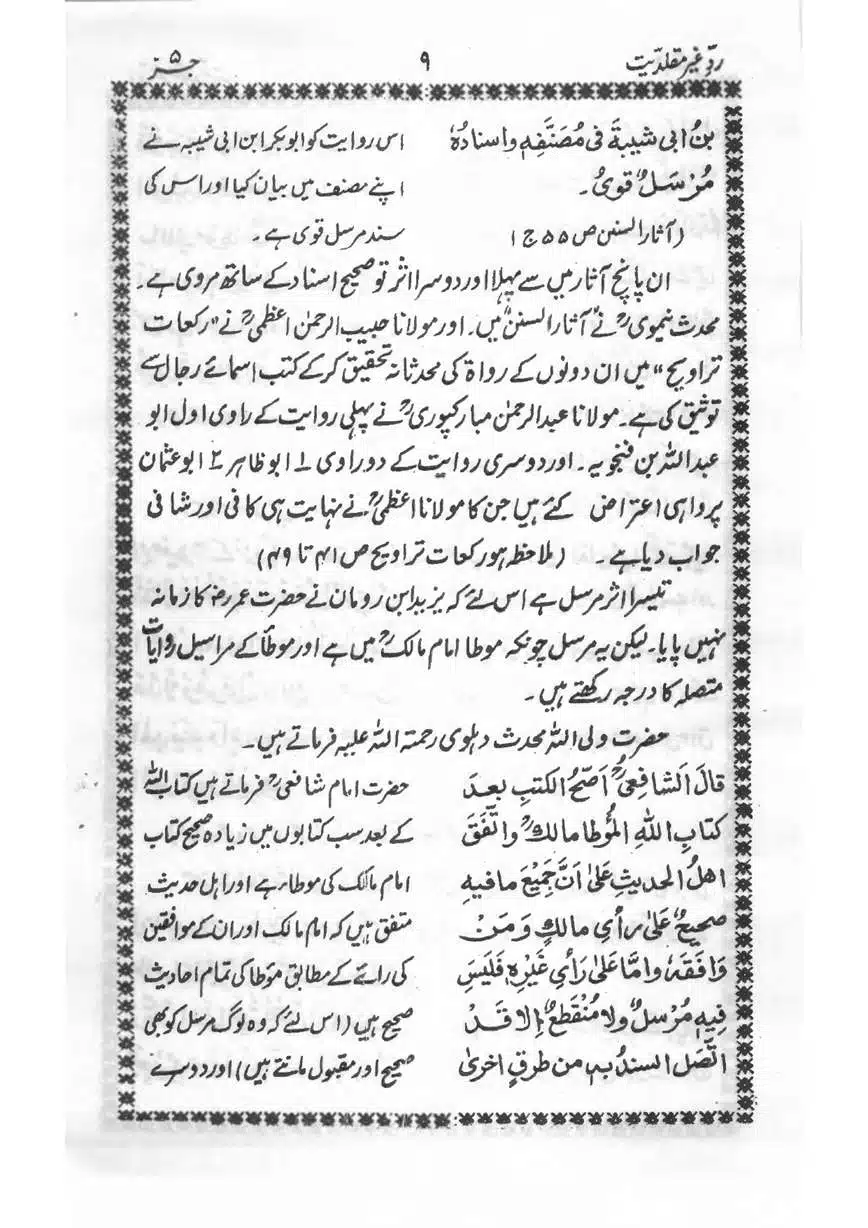 ردِّ غیر مقلدیت ۹ جز ۵
بنُ ابی شیبۃَ فی مُصَنَّفِہٖ واسنادُہٗ اس روایت کو ابوبکر ابن ابی شیبہ نے
مُرْسَلٌ قویٌ۔ اپنے مصنف میں بیان کیا اور اس کی
(آثار السنن ص ۵۵ ج ۱) سند مرسل قوی ہے۔
ان پانچ آثار میں سے پہلا اور دوسرا اثر تو صحیح اسناد کے ساتھ مروی ہے۔
محدث نیموی رح نے ”آثار السنن“ میں۔ اور مولانا حبیب الرحمٰن اعظمی رح نے ”رکعات
تراویح“ میں ان دونوں کے رواۃ کی محدثانہ تحقیق کرکے کتب اسمائے رجال سے
توثیق کی ہے۔ مولانا عبدالرحمٰن مبارکپوری رح نے پہلی روایت کے راوی اول ابو
عبداللہ بن فنجویہ۔ اور دوسری روایت کے دو راوی ۱ ابوظاہر ۲ ابوعثمان
پر واہی اعتراض کئے ہیں جن کا مولانا اعظمی رح نے نہایت ہی کافی اور شافی
جواب دیا ہے۔ (ملاحظہ ہو رکعات تراویح ص ۴۱ تا ۴۹)
تیسرا اثر مرسل ہے اس لئے کہ یزید ابن رومان نے حضرت عمر رضؓ کا زمانہ
نہیں پایا۔ لیکن یہ مرسل چونکہ موطا امام مالک رح میں ہے اور موطأ کے مراسیل روایات
متصلہ کا درجہ رکھتے ہیں۔
حضرت ولی اللہ محدث دہلوی رحمتہ اللہ علیہ فرماتے ہیں۔
قالَ الشافِعی رح اَصَحُّ الکتبِ بعدَ حضرت امام شافعی رح فرماتے ہیں کتاب اللہ
کتابِ اللہِ المُؤطا مالک رح واتَّفَقَ کے بعد سب کتابوں میں زیادہ صحیح کتاب
اھلُ الحدیثِ عَلیٰ اَنَّ جَمِیْعَ مافیہِ امام مالک کی موطا رہے اور اہل حدیث
صحیحٌ عَلیٰ رأیِ مالکٍ وَمَنْ متفق ہیں کہ امام مالک اور ان کے موافقین
وَافَقَہٗ وامَّا عَلیٰ رَأیِ غَیْرِہٖ فَلَیْسَ کی رائے کے مطابق مؤطا کی تمام احادیث
فِیہِ مُرْسَلٌ ولا مُنْقَطِعٌ اِلا قَدْ صحیح ہیں (اس لئے کہ وہ لوگ مرسل کو بھی
اتَّصَلَ السندُ بہٖ من طرقٍ اخریٰ صحیح اور مقبول مانتے ہیں) اور دوسرے